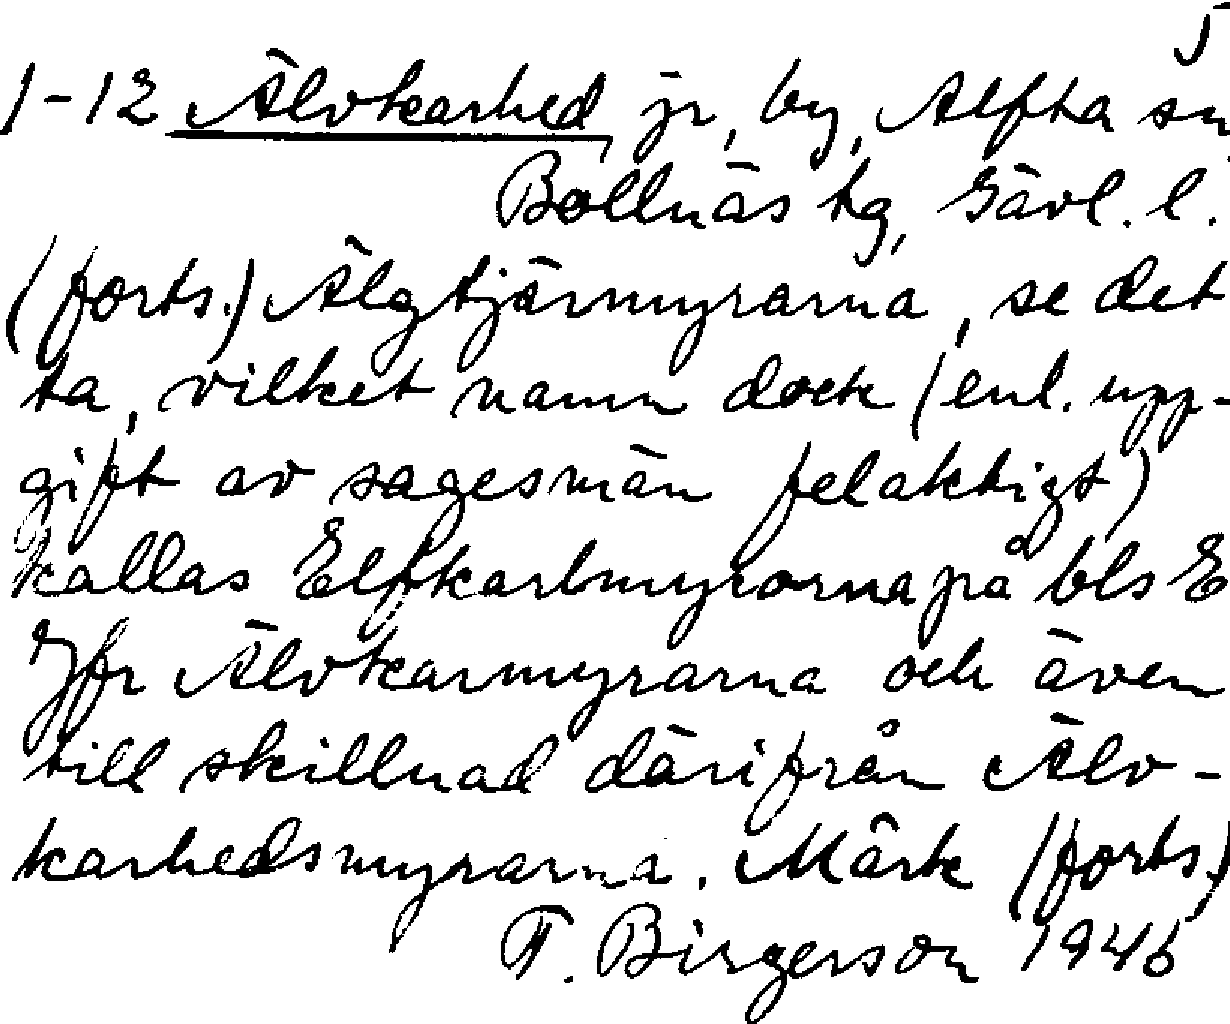 5
1-12 Älvkarhed, jr, by, Alfta sn,
Bollnäs tg, Gävl. l.
(forts.) Älgtjärnmyrarna, se det
ta, vilket namn dock (enl. upp-
gift av sagesmän felaktigt)
kallas Elfkarlmyrorna på bls E
Jfr Älvkarmyrarna och även
till skillnad därifrån Älv-
karhedsmyrarna. Märk (forts.)
F. Birgerson 1946